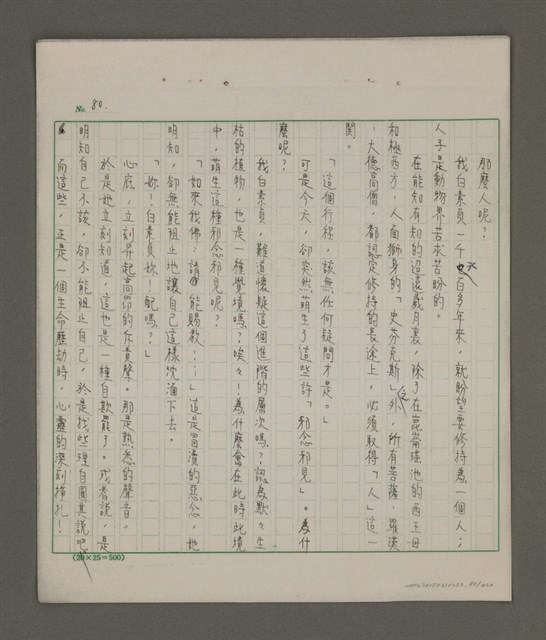 No. 80.
那麼人呢?
我白素貞一千七百多年來,就盼望要修持為一個人;
人子是動物界苦求苦盼的。
在能知有知的迢遠歲月裏,除了在崑崙瑤池的西王母
和極西方,人面獅身的「史芬克斯」外,所有菩薩,羅漢
,大德高僧,都認定修持的長途上,必須取得「人」這一
關。
「這個行程,該無任何疑問才是。」
可是今天,卻突然萌生了這些許「邪念邪見」。為什
麼呢?
我白素貞,難道懷疑這個進階的層次嗎?認為點々生
枯的植物,也是一種覺境嗎?唉々!為什麼會在此時此境
中,萌生這種邪念邪見呢?
「如來我佛?請 能賜救!⋯」這是冒瀆的惡念,她
明知,卻無能阻止地讓自己這樣沈湎下去。
「妳!白素貞妳!配嗎?」
心底,立刻昇起高昂的斥責聲。那是熟悉的聲音,
於是她立刻知道,這也是一種自欺罷了。或者說,是
明知自己不該,卻不能阻止自己,於是找些理自圓其說吧
而這些,正是一個生命歷劫時,心靈的深刻掙扎!
(20×25=500)